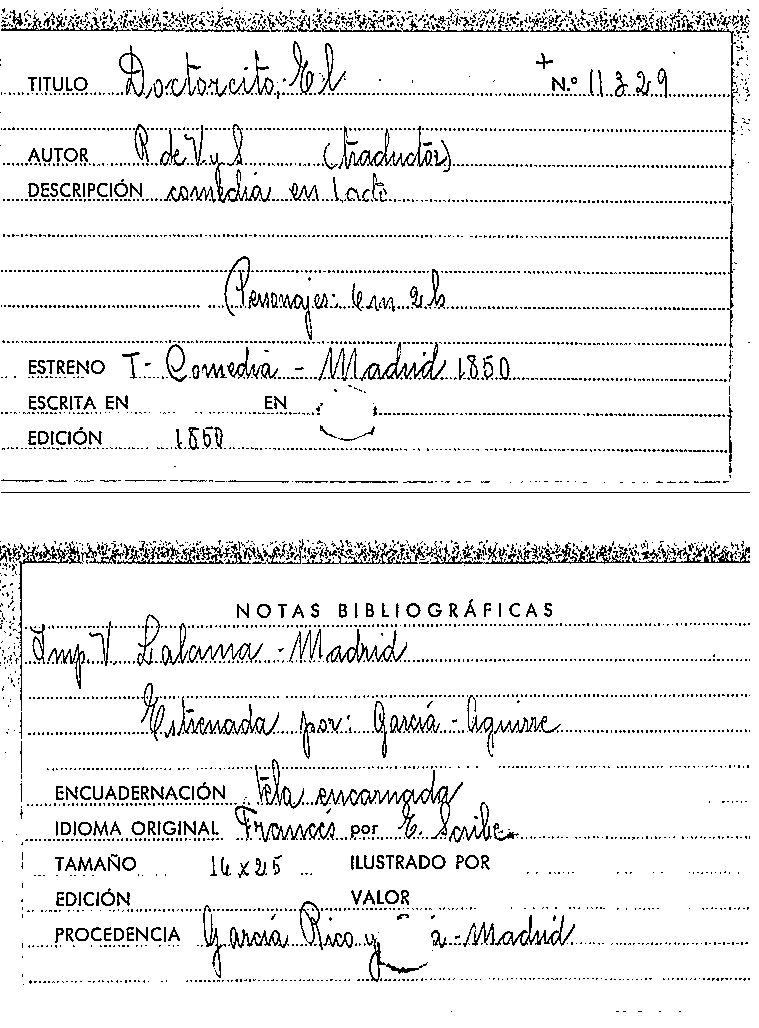 TITULO Doctorcito, El + N.º 11329
AUTOR R de V y S (traductor)
DESCRIPCIÓN comedia en 1 acto
Personajes: 6 m 2 h
ESTRENO T - Comedia - Madrid 1850
ESCRITA EN EN
EDICIÓN 1850
NOTAS BIBLIOGRÁFICAS
Imp. V. Lalama - Madrid
Estrenada por: García - Aguirre
ENCUADERNACIÓN tela encarnada
IDIOMA ORIGINAL Francés por E. Scribe
TAMAÑO 16 x 25 ILUSTRADO POR
EDICIÓN VALOR
PROCEDENCIA García Rico y - Madrid